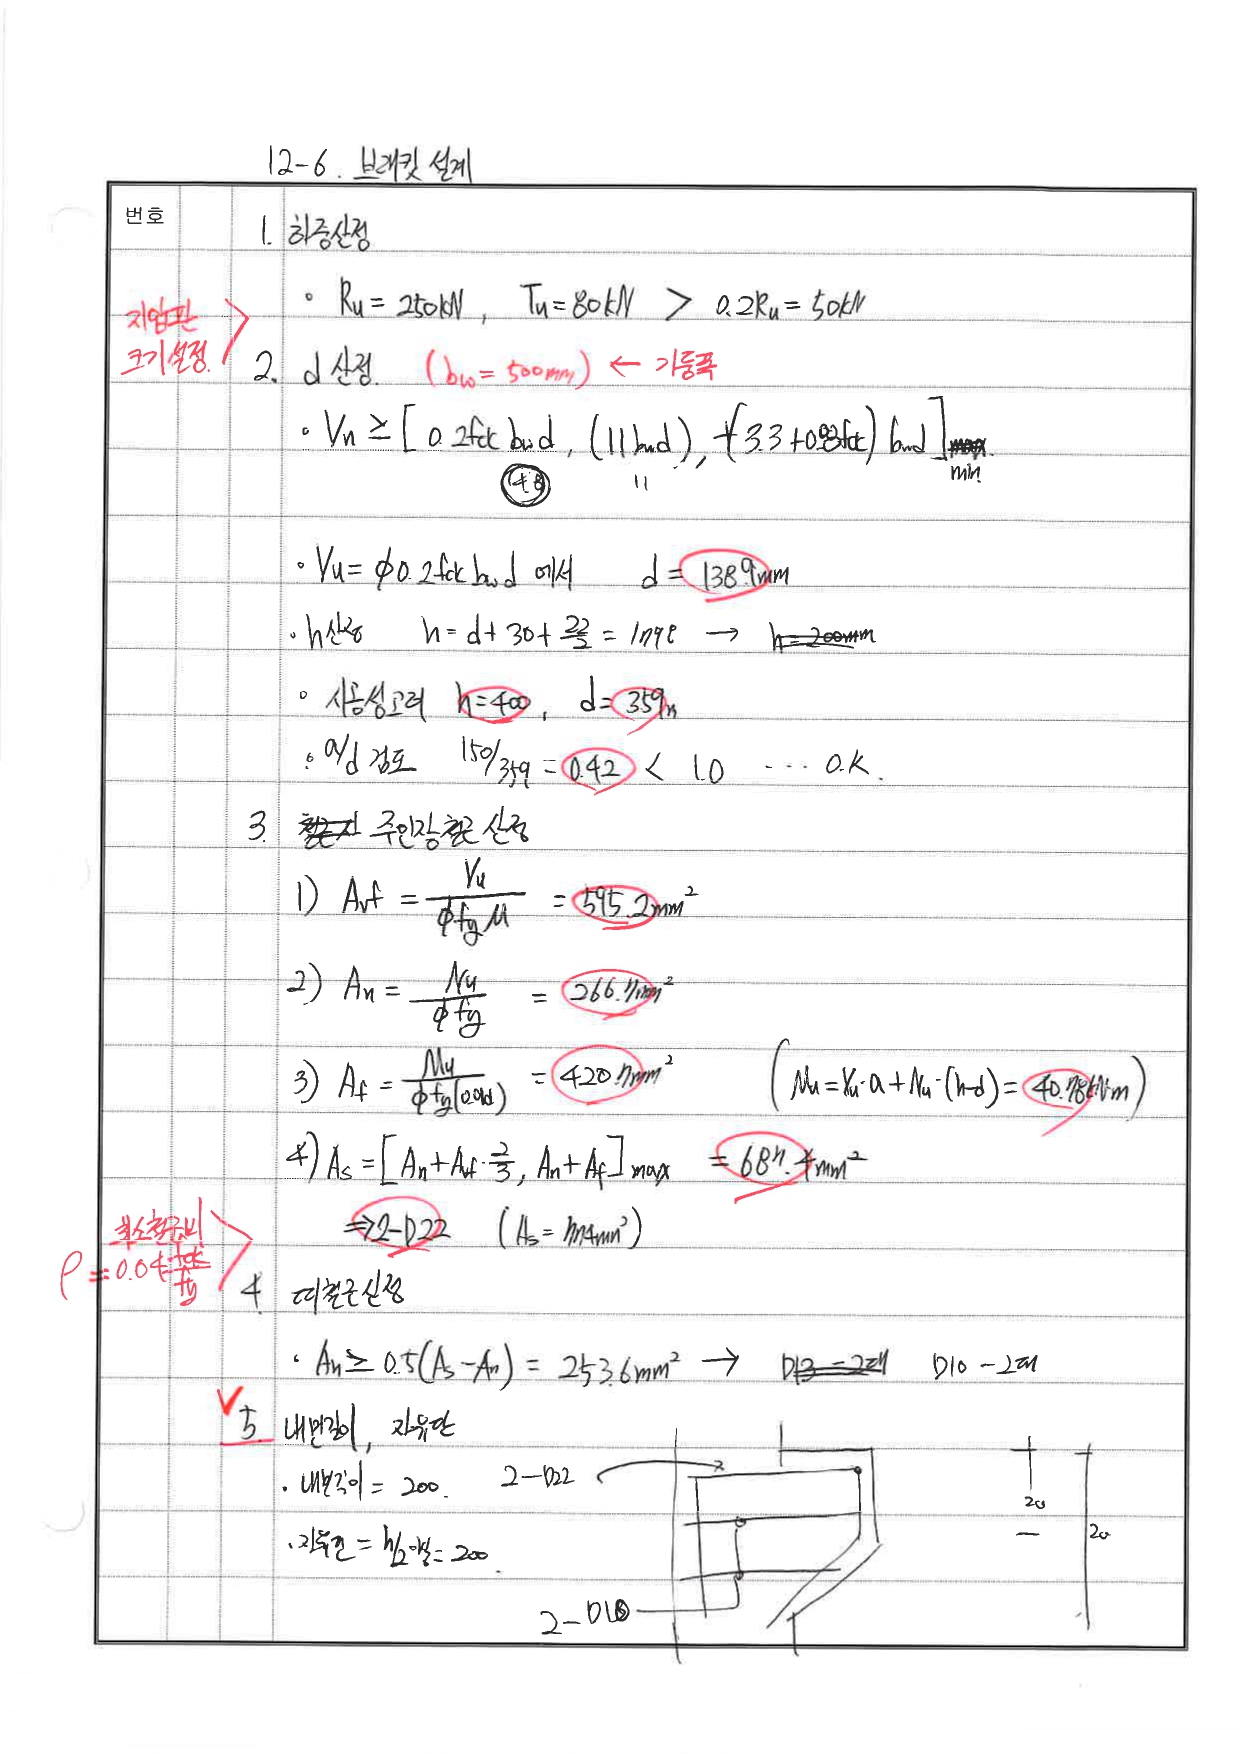 12-6. 브래킷 설계
번호
1. 하중산정
• Ru = 250kN, Tu = 80kN > 0.2Ru = 50kN
지압판
크기설정.
2. d 산정. (bw = 500mm) ← 기둥폭
• Vn ≥ [0.2fck bwd, (11bwd), (3.3+0.08fck) bwd] min
4.8 11
• Vu = φ0.2fck bwd 에서 d = 138.9mm
• h산정 h = d + 30 + 22/2 = 179.8 → h=200mm
• 사용성고려 h=400, d=359
• a/d 검토 150/359 = 0.42 < 1.0 ... O.K.
3. 주인장철근 산정
1) Avf = Vu/φfyμ = 595.2mm²
2) An = Nu/φfy = 266.7mm²
3) Af = Mu/φfy(0.9d) = 420.7mm² (Mu = Vu·a + Nu·(h-d) = 40.78kN·m)
4) As = [An + Avf·2/3, An + Af] max = 687.4mm²
⇒ 2-D22 (As = 774mm²)
최소철근비
ρ = 0.04 fck/fy
4. 띠철근산정
• An ≥ 0.5(As - An) = 253.6mm² → D13-2대 D10-2대
V
5. 내민길이, 자유단
• 내민길이 = 200.
2-D22
• 자유단 = h/2 이상 = 200.
20
20
2-D10